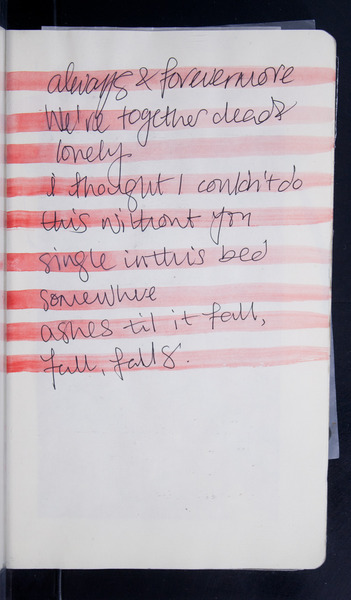 always & forevermore
We're together dead &
lonely
I thought I couldn't do
this without you
single in this bed
somewhere
ashes til it fall,
fall, falls.